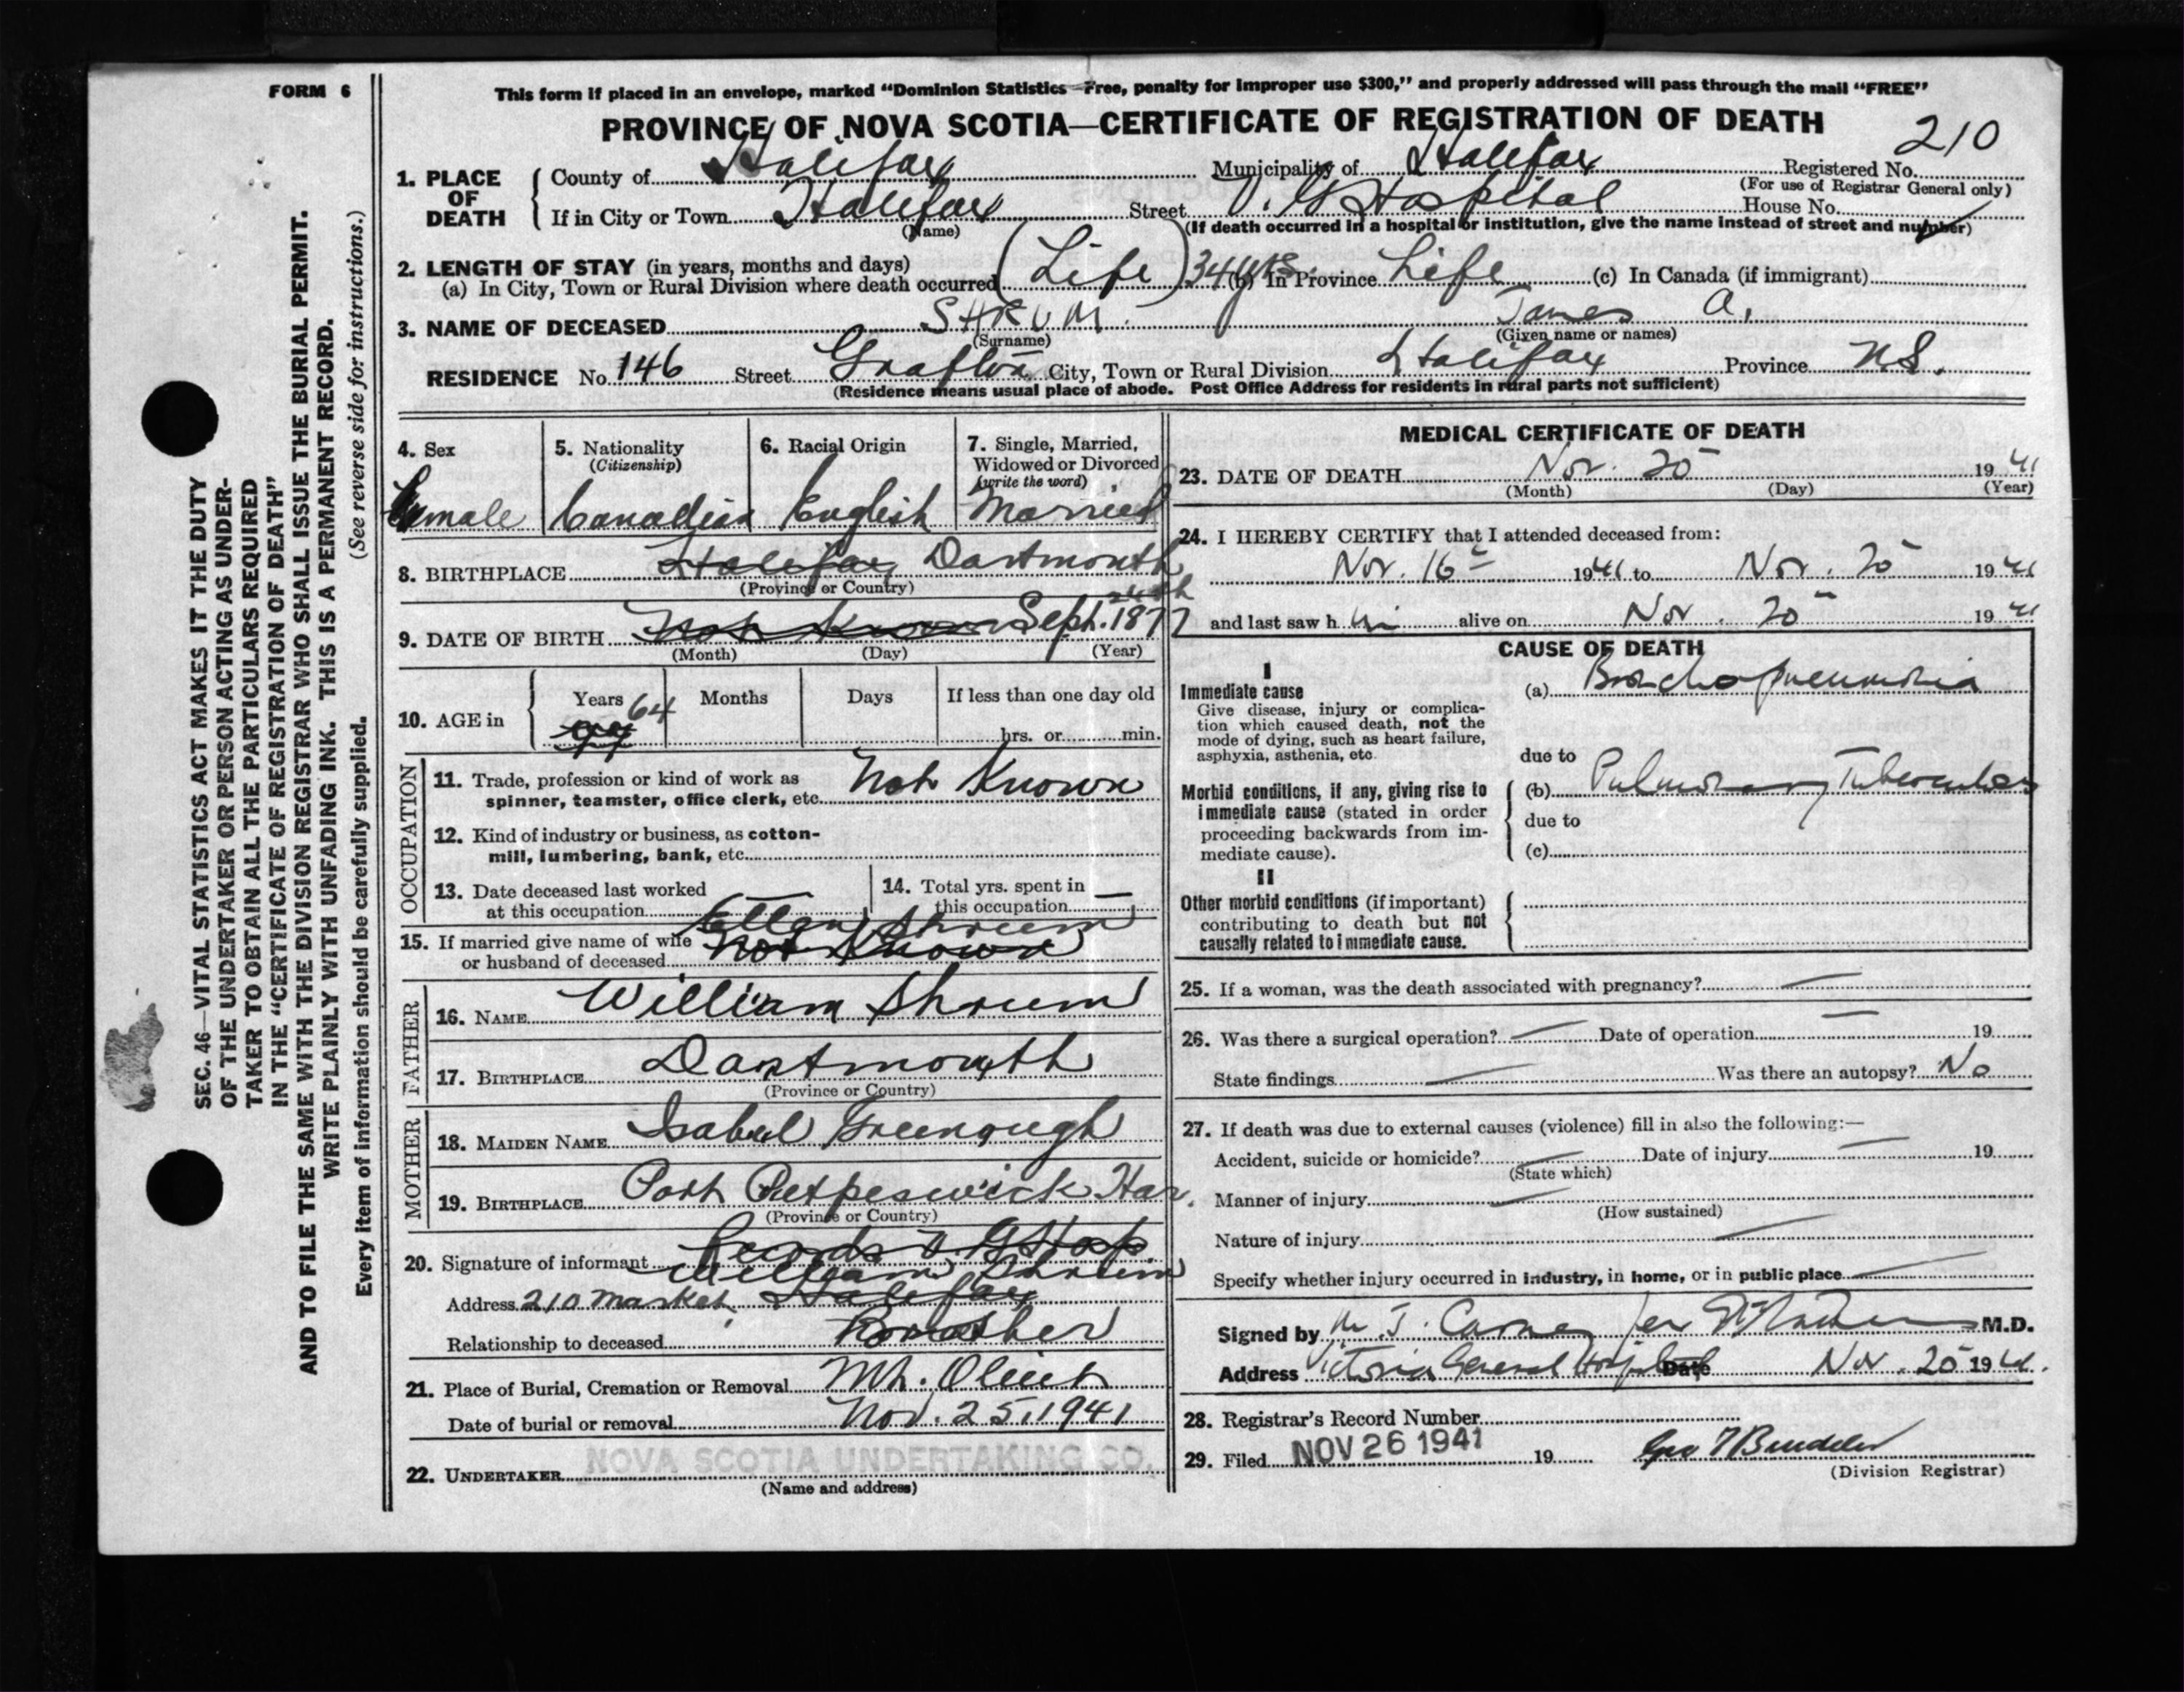 FORM 6
This form if placed in an envelope, marked “Dominion Statistics—Free, penalty for improper use $300,” and properly addressed will pass through the mail “FREE”
PROVINCE OF NOVA SCOTIA—CERTIFICATE OF REGISTRATION OF DEATH
210
1. PLACE OF DEATH
County of Halifax Municipality of Halifax Registered No.
(For use of Registrar General only)
If in City or Town Halifax Street V. G Hospital House No.
(Name) (If death occurred in a hospital or institution, give the name instead of street and number)
2. LENGTH OF STAY (in years, months and days)
(a) In City, Town or Rural Division where death occurred (Life) 34 yrs. (b) In Province Life (c) In Canada (if immigrant)
3. NAME OF DECEASED James A.
(Surname) (Given name or names)
RESIDENCE No. 146 Street Grafton City, Town or Rural Division Halifax Province N.S.
(Residence means usual place of abode. Post Office Address for residents in rural parts not sufficient)
4. Sex
male
5. Nationality
(Citizenship)
Canadian
6. Racial Origin
English
7. Single, Married,
Widowed or Divorced
(write the word)
Married
8. BIRTHPLACE Halifax Dartmouth
(Province or Country)
24th
9. DATE OF BIRTH Not Known Sept. 1877
(Month) (Day) (Year)
10. AGE in
Years 64 Months Days If less than one day old
hrs. or min.
OCCUPATION
11. Trade, profession or kind of work as
spinner, teamster, office clerk, etc. Not Known
12. Kind of industry or business, as cotton-
mill, lumbering, bank, etc.
13. Date deceased last worked
at this occupation —
14. Total yrs. spent in
this occupation —
Ellen Shrum
15. If married give name of wife
or husband of deceased Not Known
FATHER
16. NAME William Shrum
17. BIRTHPLACE Dartmouth
(Province or Country)
MOTHER
18. MAIDEN NAME Isabel Greenough
19. BIRTHPLACE Port Petpeswick Har.
(Province or Country)
Records V. G Hosp
20. Signature of informant William Shrum
Address 210 Market Halifax
Relationship to deceased Brother
21. Place of Burial, Cremation or Removal Mt. Olivet
Date of burial or removal Nov. 25, 1941
22. UNDERTAKER NOVA SCOTIA UNDERTAKING CO.
(Name and address)
MEDICAL CERTIFICATE OF DEATH
23. DATE OF DEATH Nov. 20 1941
(Month) (Day) (Year)
24. I HEREBY CERTIFY that I attended deceased from:
Nov. 16 1941 to Nov. 20 1941
and last saw h im alive on Nov. 20 1941
CAUSE OF DEATH
I
Immediate cause
Give disease, injury or complica-
tion which caused death, not the
mode of dying, such as heart failure,
asphyxia, asthenia, etc.
(a) Bronchopneumonia
due to
Morbid conditions, if any, giving rise to
immediate cause (stated in order
proceeding backwards from im-
mediate cause).
(b) Pulmonary Tuberculosis
due to
(c)
II
Other morbid conditions (if important)
contributing to death but not
causally related to immediate cause.
25. If a woman, was the death associated with pregnancy? —
26. Was there a surgical operation? — Date of operation — 19
State findings — Was there an autopsy? No
27. If death was due to external causes (violence) fill in also the following:—
Accident, suicide or homicide? — Date of injury — 19
(State which)
Manner of injury —
(How sustained)
Nature of injury —
Specify whether injury occurred in industry, in home, or in public place —
Signed by per M.D.
Address Victoria General Hospital Date Nov. 20 1941.
28. Registrar's Record Number
29. Filed NOV 26 1941 19
(Division Registrar)
SEC. 46—VITAL STATISTICS ACT MAKES IT THE DUTY
OF THE UNDERTAKER OR PERSON ACTING AS UNDER-
TAKER TO OBTAIN ALL THE PARTICULARS REQUIRED
IN THE “CERTIFICATE OF REGISTRATION OF DEATH”
AND TO FILE THE SAME WITH THE DIVISION REGISTRAR WHO SHALL ISSUE THE BURIAL PERMIT.
WRITE PLAINLY WITH UNFADING INK. THIS IS A PERMANENT RECORD.
Every item of information should be carefully supplied. (See reverse side for instructions.)